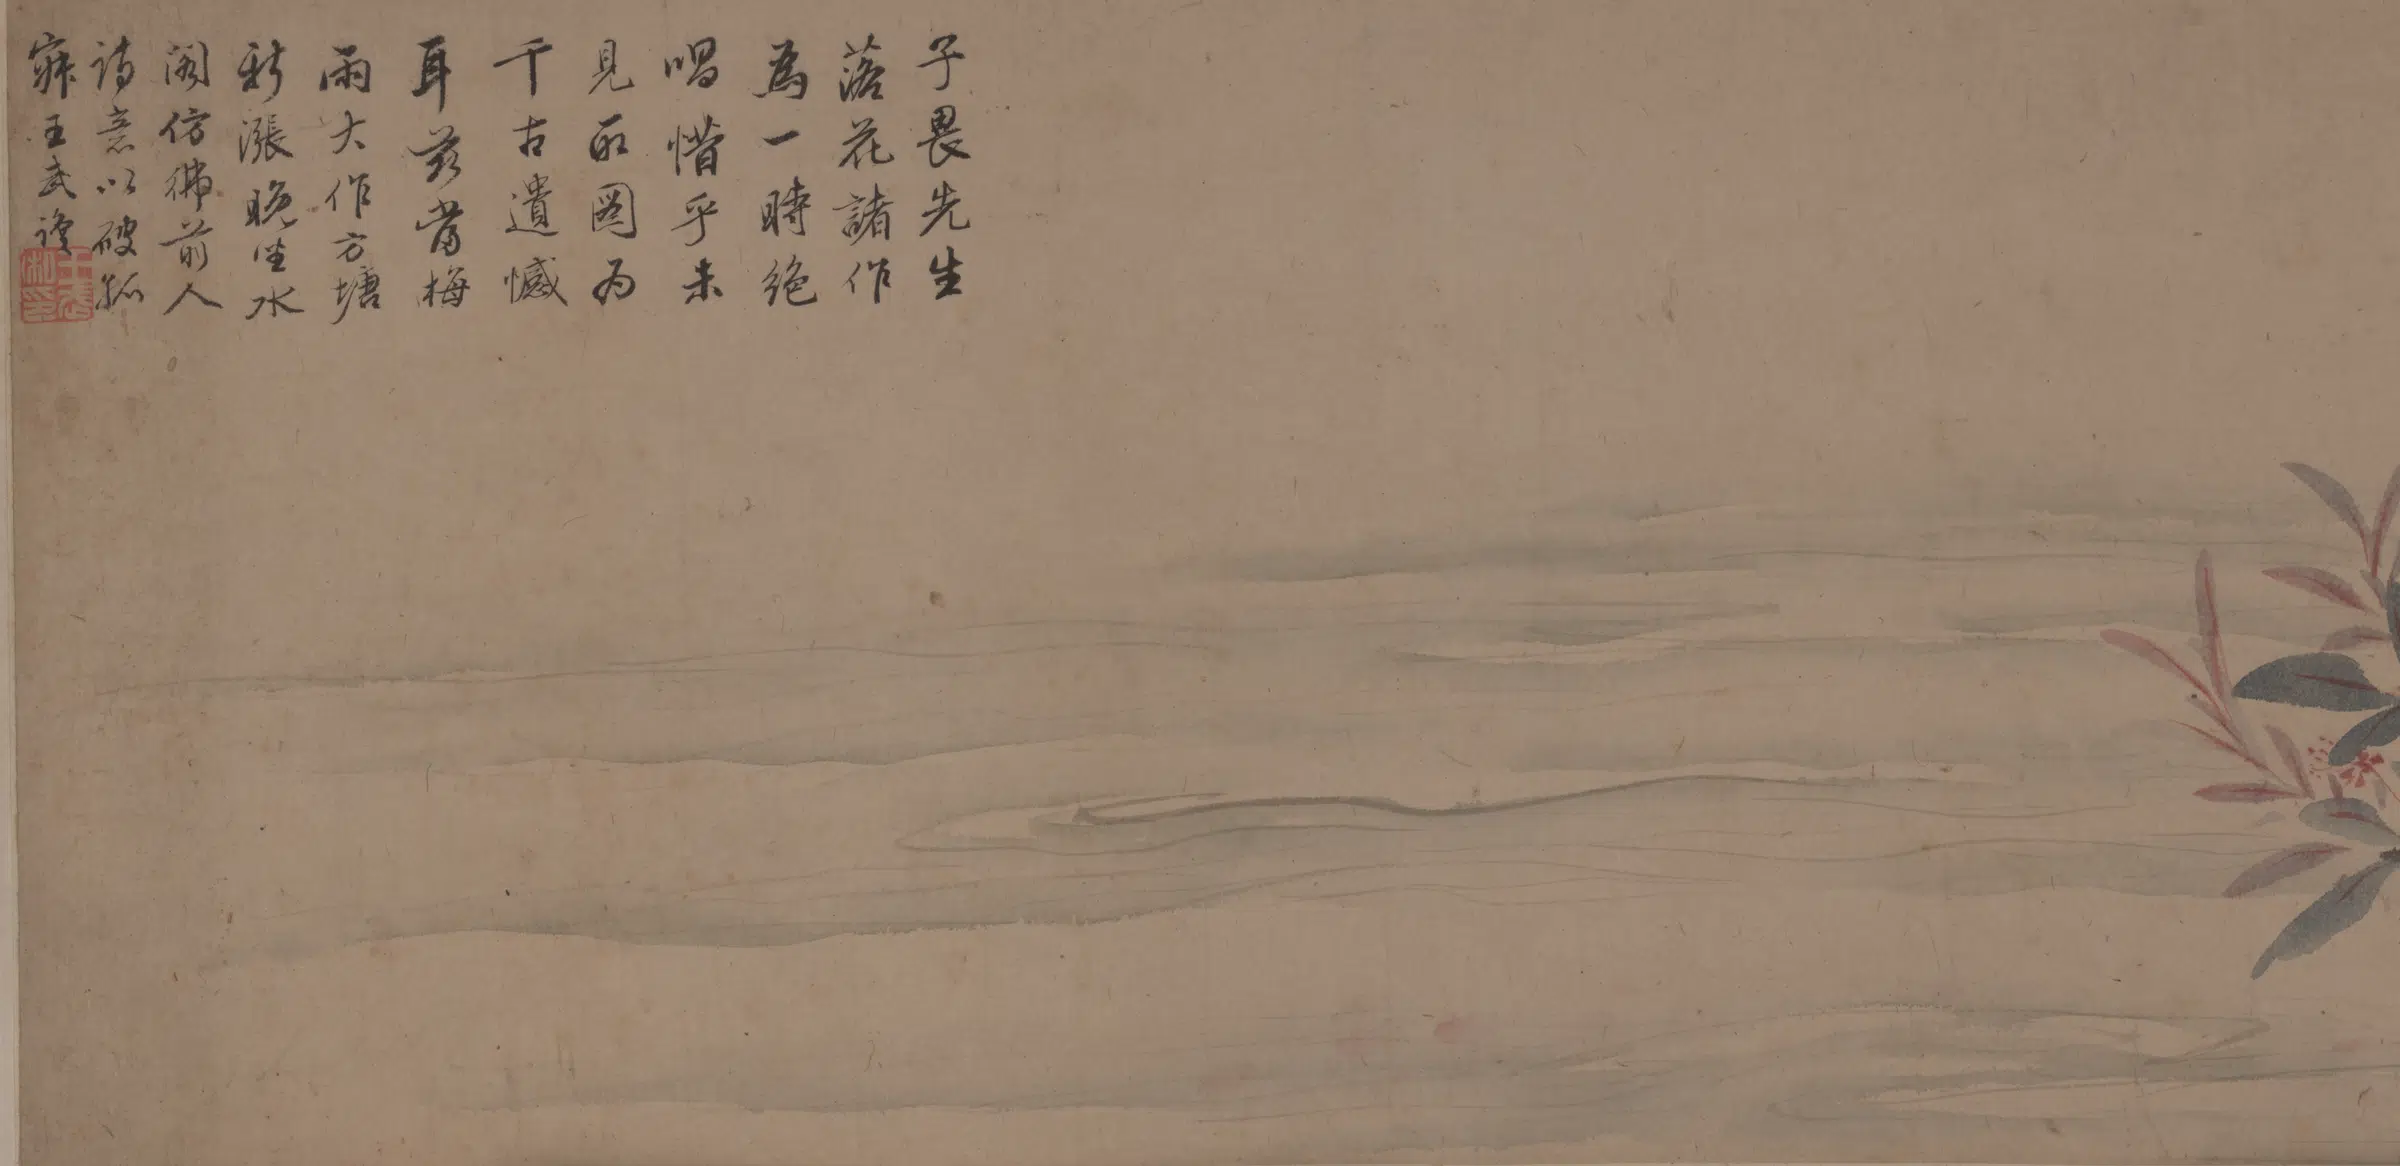 子畏先生
落花諸作
為一時絕
唱惜乎未
見所圖为
千古遺憾
耳茲當梅
雨大作方塘
新漲晚坐水
閣仿彿前人
詩意以破孤
寂王武識